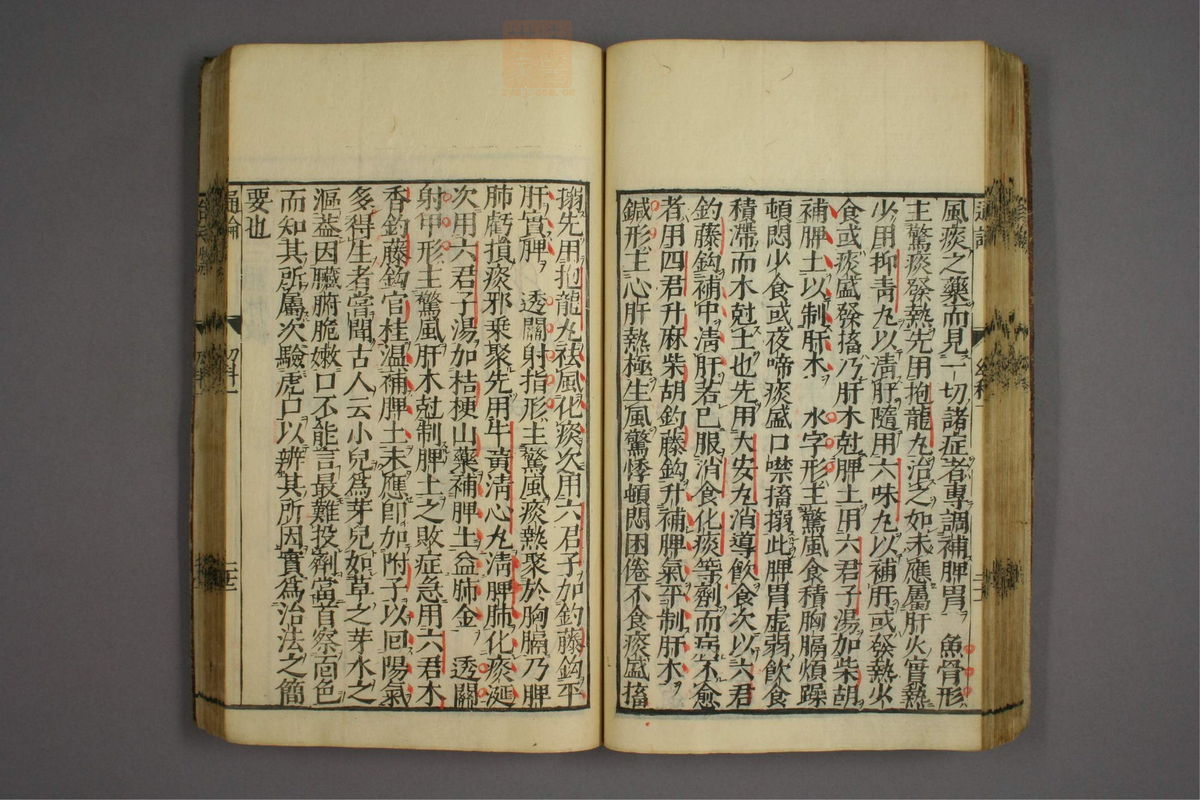 風痰之藥而見一切諸症者專調補脾胃　魚骨形
主驚痰發熱先用抱龍丸治之如未應屬肝火實熱
少用抑青丸以清肝隨用六味丸以補肝或發熱少
食或痰盛發搐乃肝木尅脾土用六君子湯加柴胡
補脾土以制肝木　水字形主驚風食積胸膈煩躁
頓悶少食或夜啼痰盛口噤搐搦此脾胃虚弱飲食
積滯而木尅土也先用大安丸消導飲食次以六君
釣藤鈎補中清肝若已服消食化痰等劑而病不愈
者用四君升麻柴胡釣藤鈎升補脾氣平制肝木
鍼形主心肝熱極生風驚悸頓悶困倦不食痰盛搐
搦先用抱龍丸祛風化痰次用六君子加釣藤鈎平
肝實脾　透關射指形主驚風痰熱聚於胸膈乃脾
肺虧損痰邪乗聚先用牛黄清心丸清脾肺化痰涎
次用六君子湯加桔梗山藥補脾土益肺金　透關
射甲形主驚風肝木尅制脾土之敗症急用六君木
香釣藤鈎官桂温補脾土未應卽加附子以回陽氣
多得生者嘗聞古人云小兒爲芽兒如草之芽水之
漚葢因臟腑脆嫩口不能言最難投劑當首察面色
而知其所屬次驗虎口以辨其所因實爲治法之簡
要也